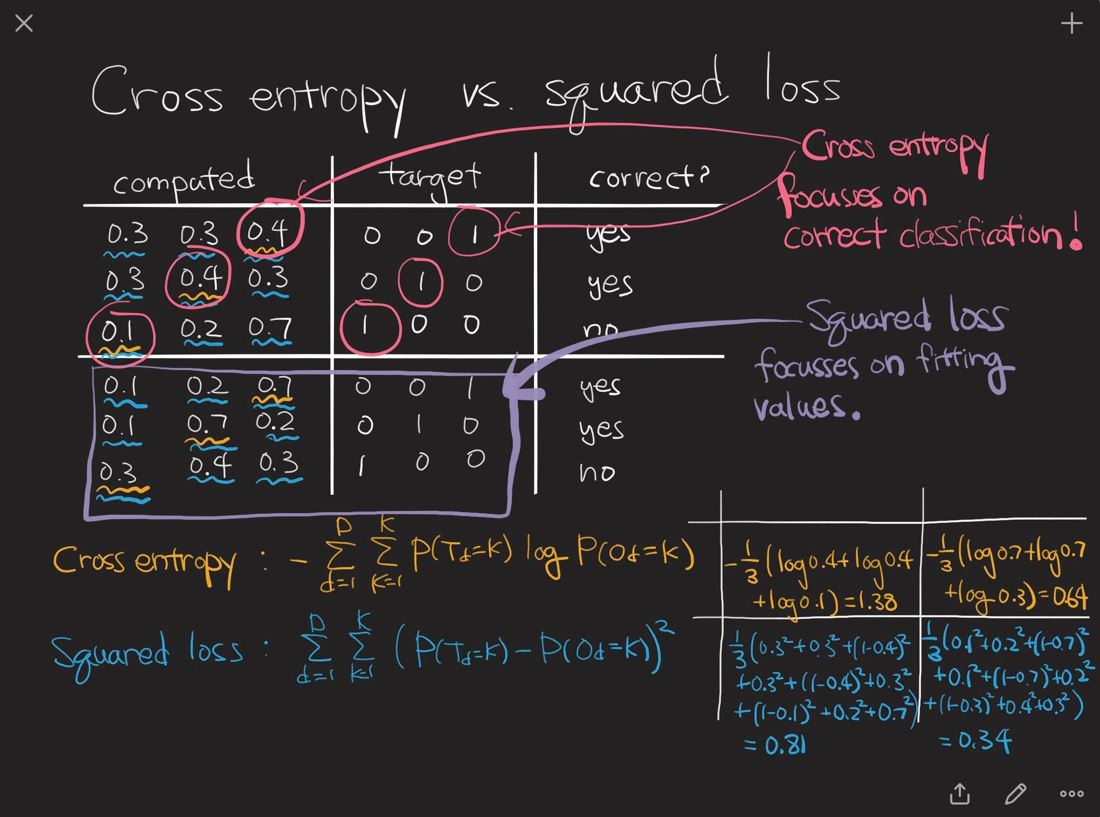 Cross entropy vs. squared loss
computed target correct?
0.3 0.3 0.4 0 0 1 yes
0.3 0.4 0.3 0 1 0 yes
0.1 0.2 0.7 1 0 0 no
0.1 0.2 0.7 0 0 1 yes
0.1 0.7 0.2 0 1 0 yes
0.3 0.4 0.3 1 0 0 no
Cross entropy
focusses on
correct classification!
Squared loss
focusses on fitting
values.
Cross entropy : - D∑d=1 K∑k=1 P(Td=k) log P(Od=k)
Squared loss : D∑d=1 K∑k=1 (P(Td=k) - P(Od=k))²
-1/3 (log0.4+log0.4
+log0.1)=1.38
-1/3 (log0.7+log0.7
+log0.3)=0.64
1/3 (0.3²+0.3²+(1-0.4)²
+0.3²+((1-0.4)²+0.3²
+((1-0.1)²+0.2²+0.7²)
= 0.81
1/3 (0.1²+0.2²+(1-0.7)²
+0.1²+((1-0.7)²+0.2²
+(1-0.3)²+0.4²+0.3²)
= 0.34